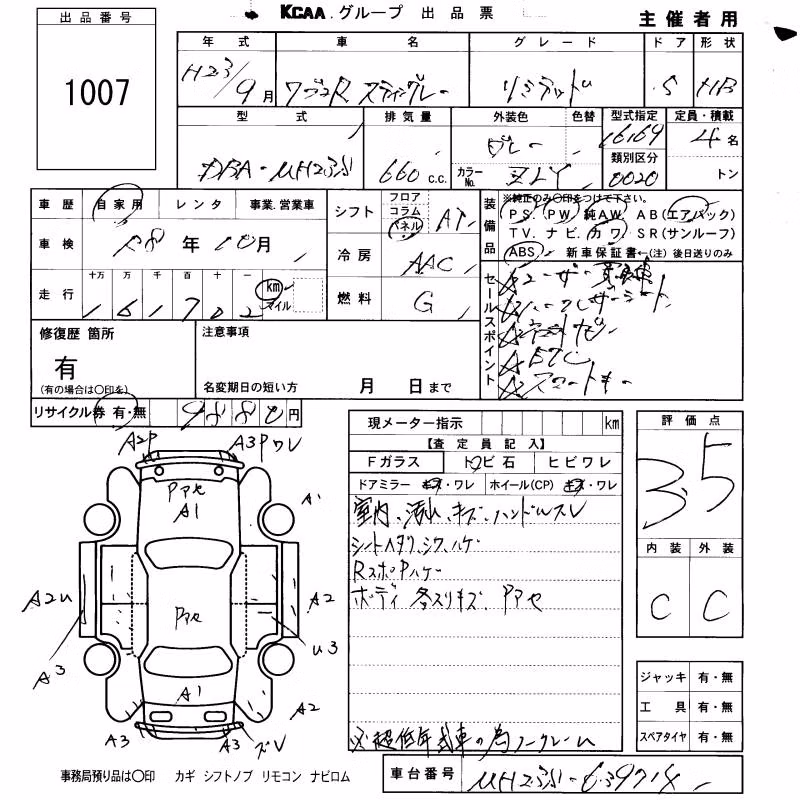 KCAA グループ 出品票
主催者用
出品番号
1007
年式 車名 グレード ドア 形状
H23/9月 ワゴンR スティングレー リミテッド 5 HB
型式 排気量 外装色 色替 型式指定 定員・積載
DBA-MH23S 660 c.c. グレー 16169 4名
カラーNo. ZLY 類別区分 0020 トン
車歴 自家用 レンタ 事業.営業車
車検 R8年10月
走行 十万 万 千 百 十 一
161702 km マイル
シフト フロア コラム パネル AT
冷房 AAC
燃料 G
装備品 ※純正のみ○印をつけて下さい。
PS. PW. 純AW. AB(エアバック)
TV. ナビ. カワ. SR(サンルーフ)
ABS. 新車保証書←(注)後日送りのみ
セールスポイント
ユーザー買取車
ナビ
ETC
スマートキー
修復歴 箇所
有
(有の場合は○印を)
注意事項
名変期日の短い方 月 日まで
リサイクル券 有・無 9880円
現メーター指示 km
【査定員記入】
Fガラス トビ石 ヒビワレ
ドアミラー キズ・ワレ ホイール(CP) キズ・ワレ
室内、汚れ、キズ、ハンドルスレ
シートヘタリ、シワ、ハゲ
RスポPハゲ
ボディ 各スリキズ、Pアセ
※超低年式車の為ノークレーム
評価点
3.5
内装 外装
C C
ジャッキ 有・無
工具 有・無
スペアタイヤ 有・無
A2P A3Pワレ
Pアセ
A1
A1
A2U A2
Pアセ
U3
A3
A1 A2
A3 A3 ズレ
事務局預り品は○印 カギ シフトノブ リモコン ナビロム
車台番号 MH23S-639714